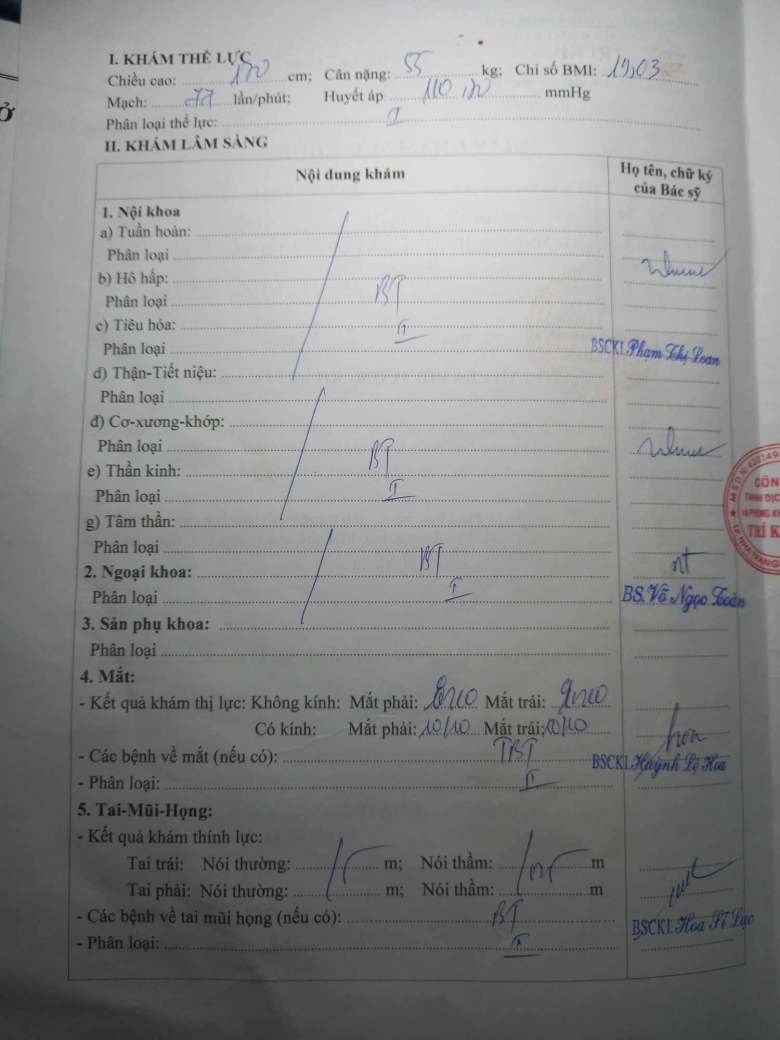 I. KHÁM THỂ LỰC
Chiều cao: 170 cm; Cân nặng: 55 kg; Chỉ số BMI: 19,03
Mạch: 77 lần/phút; Huyết áp 110/70 mmHg
Phân loại thể lực: I
II. KHÁM LÂM SÀNG
Nội dung khám
Họ tên, chữ ký
của Bác sỹ
1. Nội khoa
a) Tuần hoàn:
Phân loại
b) Hô hấp:
BT
Phân loại
c) Tiêu hóa: I
Phân loại
BSCKI. Phạm Thị Loan
d) Thận-Tiết niệu:
Phân loại
đ) Cơ-xương-khớp:
Phân loại BT
e) Thần kinh:
Phân loại I
g) Tâm thần:
Phân loại
2. Ngoại khoa: BT
Phân loại I
BS. Võ Ngọc Toàn
3. Sản phụ khoa:
Phân loại
4. Mắt:
- Kết quả khám thị lực: Không kính: Mắt phải: Mắt trái:
Có kính: Mắt phải: 10/10 Mắt trái: 10/10
- Các bệnh về mắt (nếu có): TBT
BSCKI. Huỳnh Lệ Hoa
- Phân loại: II
5. Tai-Mũi-Họng:
- Kết quả khám thính lực:
Tai trái: Nói thường: m; Nói thầm: m
Tai phải: Nói thường: m; Nói thầm: m
- Các bệnh về tai mũi họng (nếu có): BT
BSCKI. Hoa Sĩ Lục
- Phân loại: I
CÔN
TRÍ K